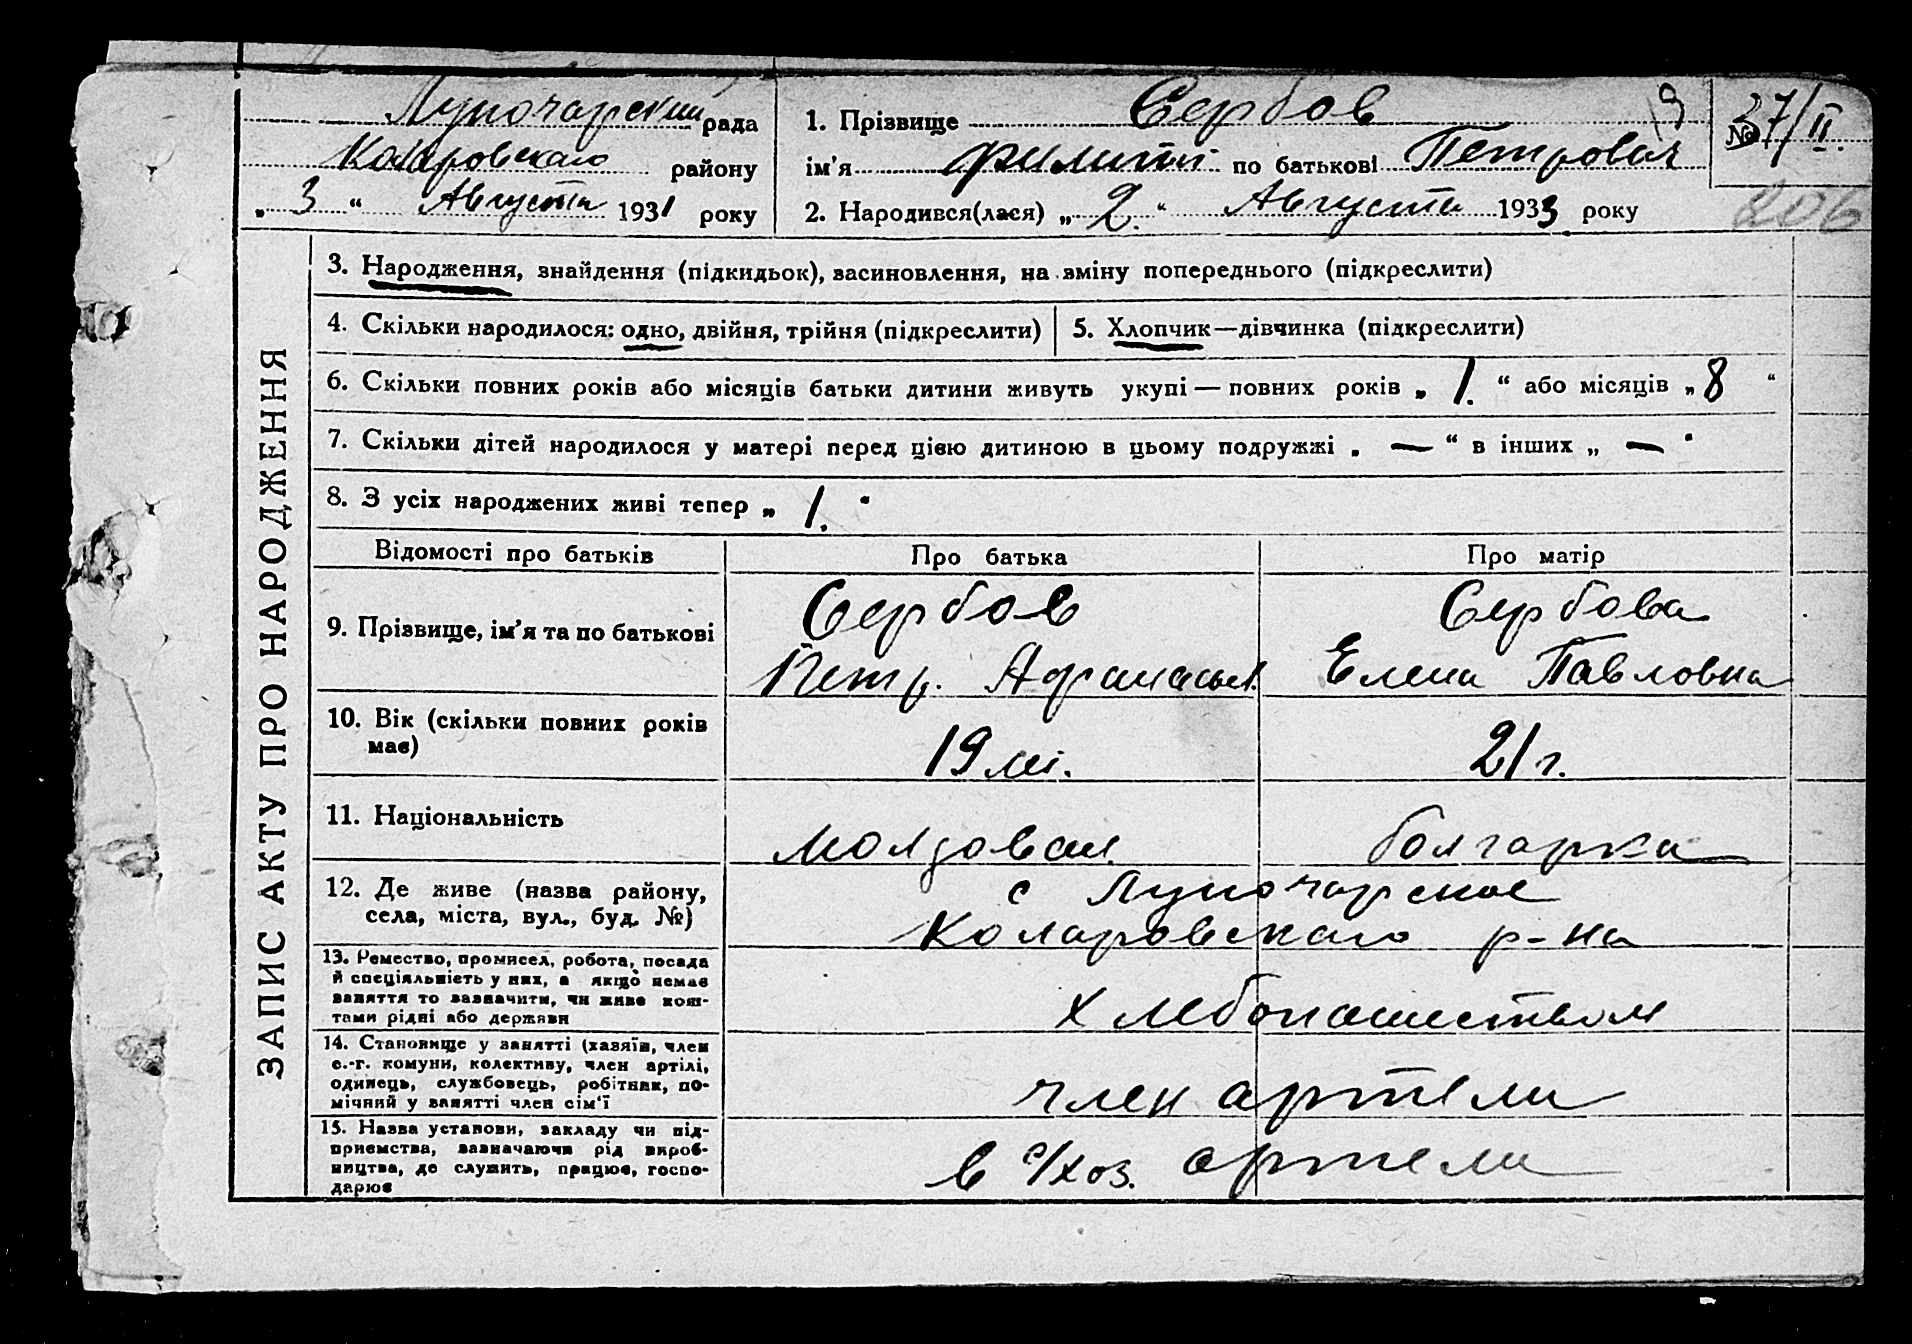 Луночарский рада
Коларовского району
„ 3 “ Августа 1931 року
1. Прізвище Сербов
ім’я Филипп по батькові Петрович
2. Народився(лася) „ 2. “ Августа 1933 року
№ 37/II.
206
ЗАПИС АКТУ ПРО НАРОДЖЕННЯ
3. Народження, знайдення (підкидьок), засиновлення, на зміну попереднього (підкреслити)
4. Скільки народилося: одно, двійня, трійня (підкреслити)
5. Хлопчик—дівчинка (підкреслити)
6. Скільки повних років або місяців батьки дитини живуть укупі — повних років „ 1. “ або місяців „ 8 “
7. Скільки дітей народилося у матері перед цією дитиною в цьому подружжі „ — “ в інших „ — “
8. З усіх народжених живі тепер „ 1. “
Відомості про батьків
Про батька
Про матір
9. Прізвище, ім’я та по батькові
Сербов
Петр. Афанасьев.
Сербова
Елена Павловна
10. Вік (скільки повних років
має)
19 лет.
21 г.
11. Національність
молдован.
болгарка
12. Де живе (назва району,
села, міста, вул., буд. №)
с Луночарское
Коларовского р-на
13. Ремество, промисел, робота, посада
й спеціяльність у них, а якщо немає
заняття то зазначити, чи живе кош-
тами рідні або держави
Хлебопашеством
14. Становище у занятті (хазяїн, член
с.-г. комуни, колективу, член артілі,
одинець, службовець, робітник, по-
мічний у занятті член сім’ї
член артели
15. Назва установи, закладу чи під-
приємства, зазначаючи рід вироб-
ництва, де служить, працює, госпо-
дарює
в с/хоз. артели